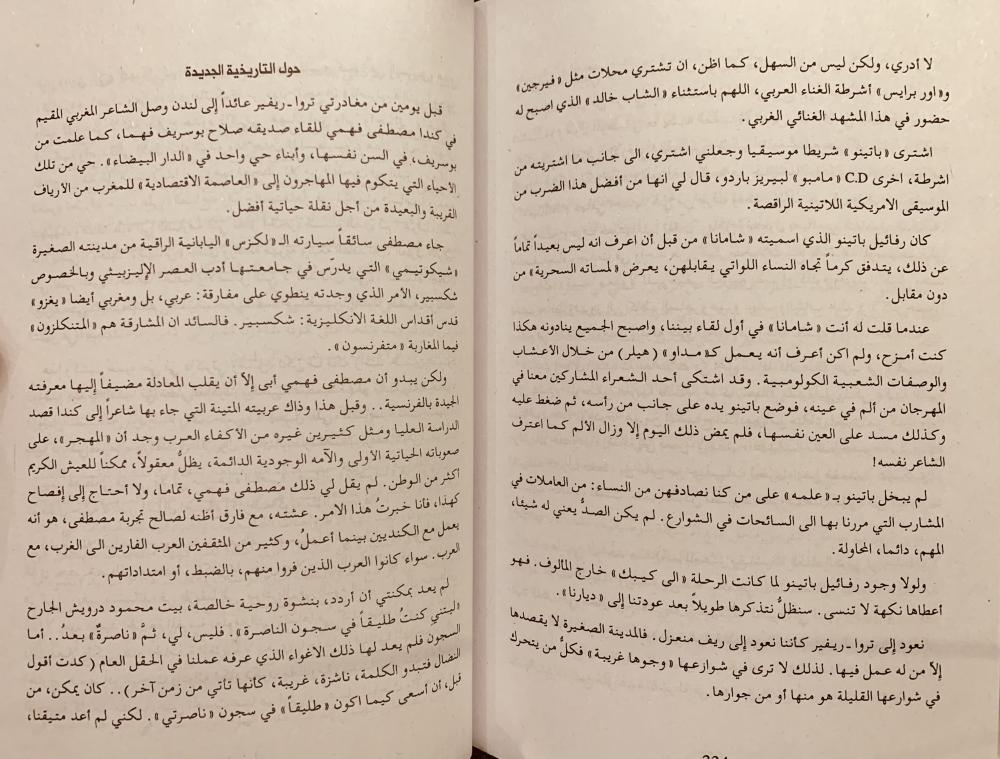 لا أدري، ولكن ليس من السهل، كما اظن، ان تشتري محلات مثل «فيرجين»
و«اور برايس» أشرطة الغناء العربي، اللهم باستثناء «الشاب خالد» الذي اصبح له
حضور في هذا المشهد الغنائي الغربي.
اشترى «باتينو» شريطا موسيقيا وجعلني اشتري، الى جانب ما اشتريته من
اشرطة، اخرى C.D «مامبو» لبيريز باردو، قال لي انها من أفضل هذا الضرب من
الموسيقى الامريكية اللاتينية الراقصة.
كان رفائيل باتينو الذي اسميته «شامانا» من قبل أن اعرف انه ليس بعيداً تماماً
عن ذلك، يتدفق كرماً تجاه النساء اللواتي يقابلهن، يعرض «لمساته السحرية» من
دون مقابل.
عندما قلت له أنت «شامانا» في أول لقاء بيننا، واصبح الجميع ينادونه هكذا
كنت أمزح، ولم اكن أعرف أنه يعمل كـ«مداو» (هيلر) من خلال الأعشاب
والوصفات الشعبية الكولومبية. وقد اشتكى أحد الشعراء المشاركين معنا في
المهرجان من ألم في عينه، فوضع باتينو يده على جانب من رأسه، ثم ضغط عليه
وكذلك مسد على العين نفسها، فلم يمض ذلك اليوم إلا وزال الألم كما اعترف
الشاعر نفسه!
لم يبخل باتينو بـ «علمه» على من كنا نصادفهن من النساء: من العاملات في
المشارب التي مررنا بها الى السائحات في الشوارع. لم يكن الصدُّ يعني له شيئا،
المهم، دائما، المحاولة.
ولولا وجود رفائيل باتينو لما كانت الرحلة «الى كيبك» خارج المالوف. فهو
أعطاها نكهة لا تنسى. سنظلُّ نتذكرها طويلاً بعد عودتنا إلى «ديارنا».
نعود إلى تروا ـ ريفير كأننا نعود إلى ريف منعزل. فالمدينة الصغيرة لا يقصدها
إلاّ من له عمل فيها. لذلك لا ترى في شوارعها «وجوها غريبة» فكلُّ من يتحرك
في شوارعها القليلة هو منها أو من جوارها.
حول التاريخية الجديدة
قبل يومين من مغادرتي تروا ـ ريفير عائداً إلى لندن وصل الشاعر المغربي المقيم
في كندا مصطفى فهمي للقاء صديقه صلاح بوسريف فهما، كما علمت من
بوسريف، في السن نفسها، وأبناء حي واحد في «الدار البيضاء». حي من تلك
الاحياء التي يتكوم فيها المهاجرون إلى «العاصمة الاقتصادية» للمغرب من الأرياف
القريبة والبعيدة من أجل نقلة حياتية أفضل.
جاء مصطفى سائقاً سيارته الـ «لكزس» اليابانية الراقية من مدينته الصغيرة
«شيكوتيمي» التي يدرّس في جامعتها أدب العصر الإليزبيثي وبالخصوص
شكسبير، الأمر الذي وجدته ينطوي على مفارقة: عربي، بل ومغربي أيضا «يغزو»
قدس أقداس اللغة الانكليزية: شكسبير. فالسائد ان المشارقة هم «المتنكلزون»
فيما المغاربة «متفرنسون».
ولكن يبدو أن مصطفى فهمي أبى إلاّ أن يقلب المعادلة مضيفاً إليها معرفته
الجيدة بالفرنسية.. وقبل هذا وذاك عربيته المتينة التي جاء بها شاعراً إلى كندا قصد
الدراسة العليا ومثل كثيرين غيره من الأكفاء العرب وجد أن «المهجر»، على
صعوباته الحياتية الأولى والآمه الوجودية الدائمة، يظلُّ معقولاً، ممكناً للعيش الكريم
أكثر من الوطن. لم يقل لي ذلك مصطفى فهمي، تماما، ولا أحتاج إلى إفصاح
كهذا، فأنا خبرتُ هذا الامر. عشته، مع فارق أظنه لصالح تجربة مصطفى، هو أنه
يعمل مع الكنديين بينما أعملُ، وكثير من المثقفين العرب الفارين الى الغرب، مع
العرب. سواء كانوا العرب الذين فروا منهم، بالضبط، أو امتداداتهم.
لم يعد بمكنتي أن أردد، بنشوة روحية خالصة، بيت محمود درويش الجارح
«ليتني كنتُ طليقاً في سجون الناصرة». فليس، لي، ثمَّ «ناصرةٌ» بعدُ.. أما
السجون فلم يعد لها ذلك الاغواء الذي عرفه عملنا في الحقل العام (كدت أقول
النضال فتبدو الكلمة، ناشزة، غريبة، كأنها تأتي من زمن آخر).. كان يمكن، من
قبل، أن أسعى كيما اكون «طليقاً» في سجون «ناصرتي». لكني لم أعد متيقنا،